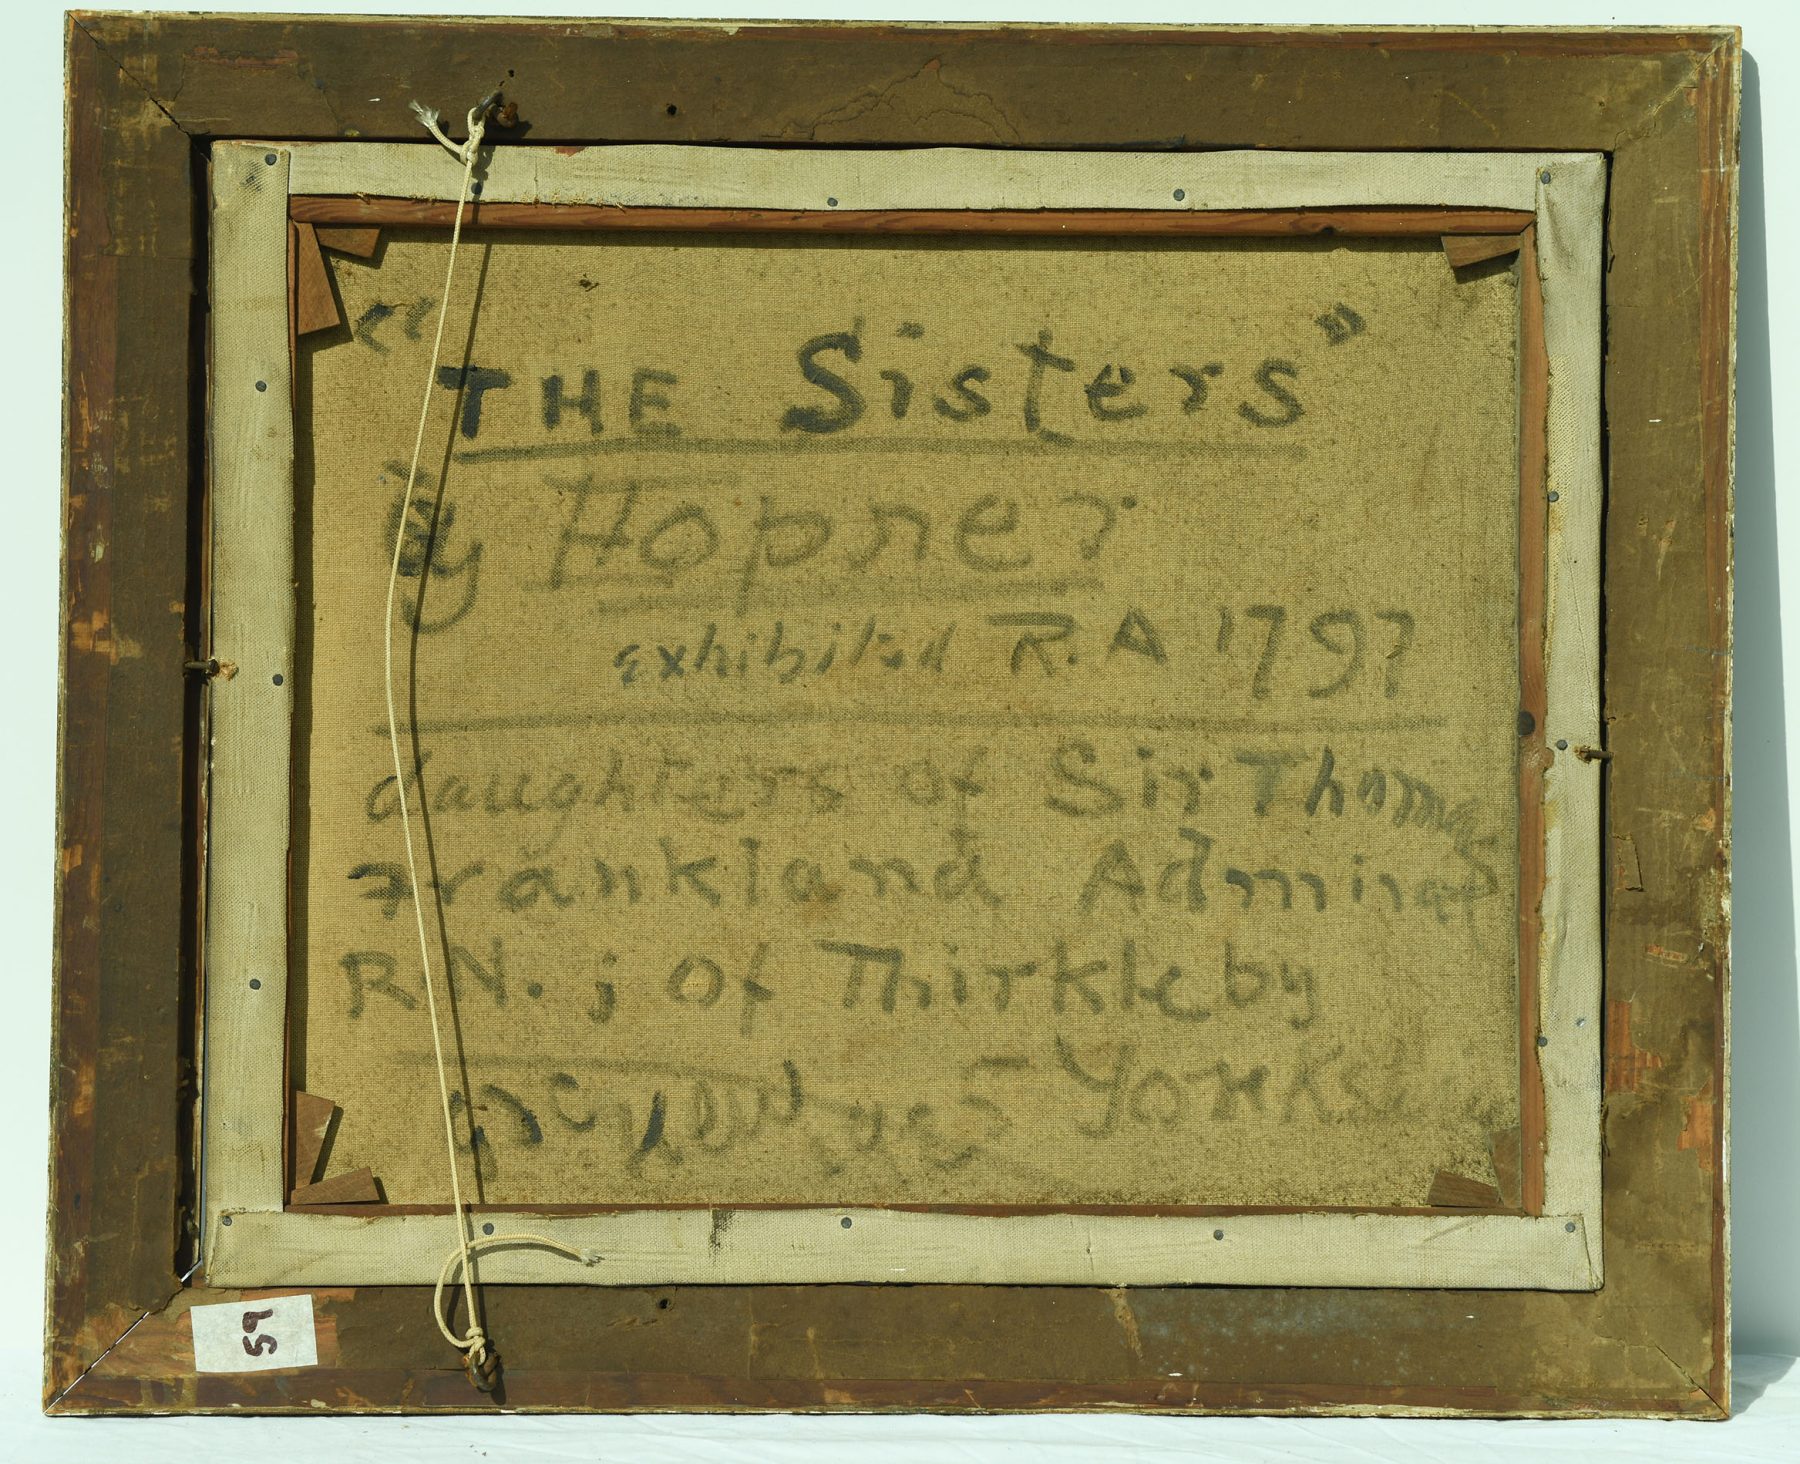 "THE Sisters"
by Hopner
exhibited R.A 1797
daughters of Sir Thomas
Frankland Admiral
R.N. j of Thirkleby
Yorks
59